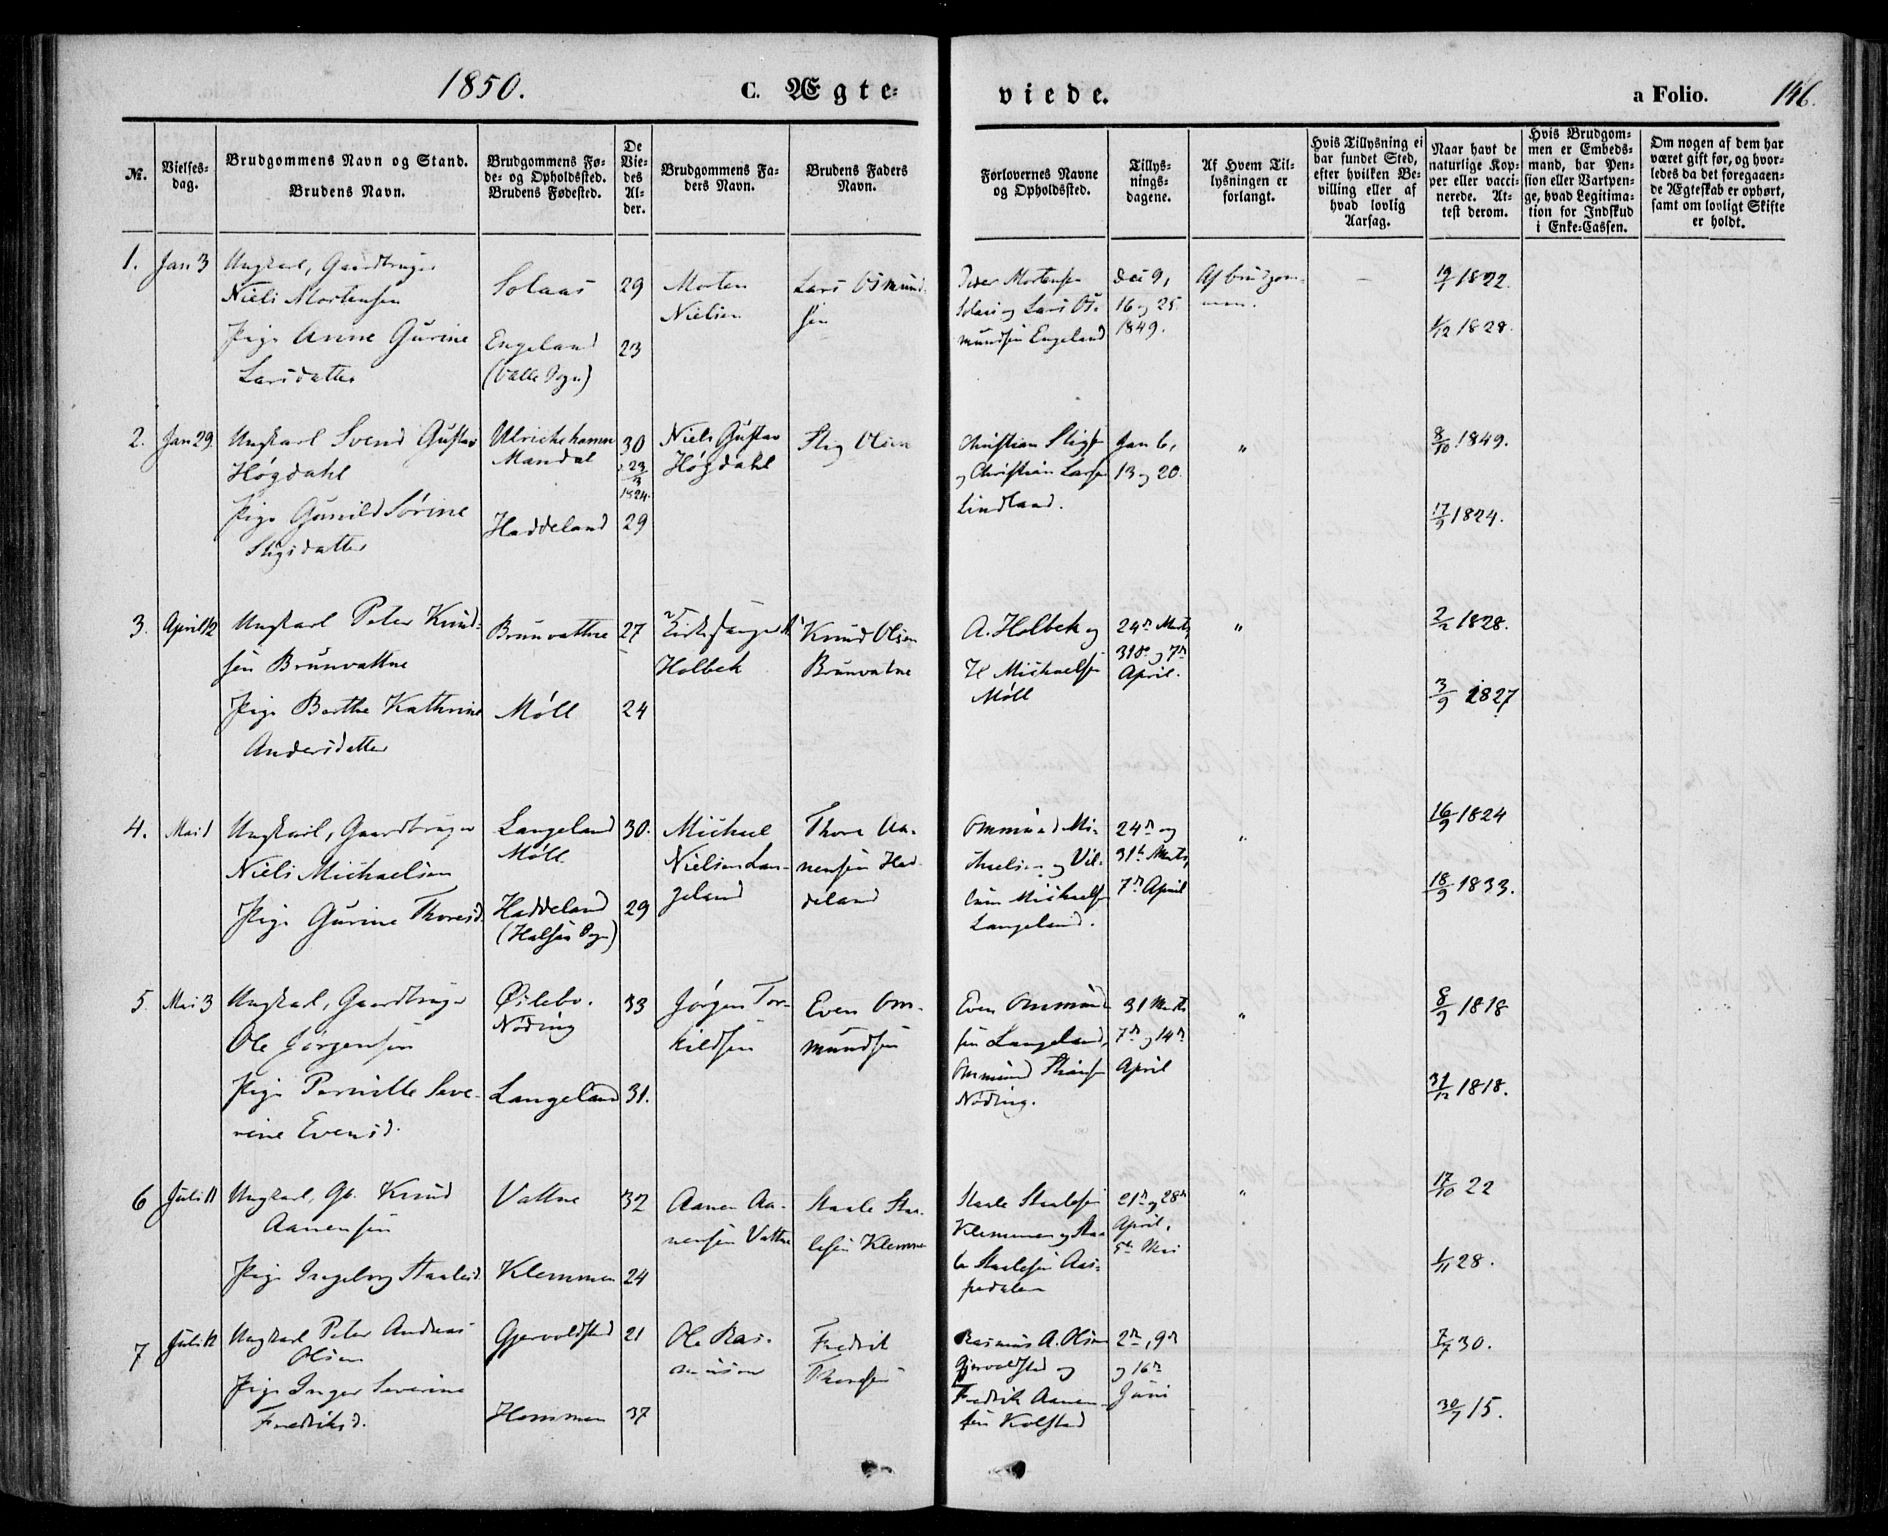 1850.
C. Ægte-
viede.
a Folio.
146.
№.
Vielses-
dag.
Brudgommens Navn og Stand.
Brudens Navn.
Brudgommens Fø-
de- og Opholdssted.
Brudens Fødested.
De
Vie-
des
Al-
der.
Brudgommens Fa-
ders Navn.
Brudens Faders
Navn.
Forlovernes Navne
og Opholdssted.
Tillys-
nings-
dagene.
Af Hvem Til-
lysningen er
forlangt.
Hvis Tillysning ei
har fundet Sted,
efter hvilken Be-
villing eller af
hvad lovlig
Aarsag.
Naar havt de
naturlige Kop-
per eller vacci-
nerede. At-
test derom.
Hvis Brudgom-
men er Embeds-
mand, har Pen-
sion eller Vartpen-
ge, hvad Legitima-
tion for Indskud
i Enke-Cassen.
Om nogen af dem har
været gift før, og hvor-
ledes da det foregaaen-
de Ægteskab er ophørt,
samt om lovligt Skifte
er holdt.
1. Jan 3
Ungkarl, Gaardbruger
Niels Mortensen
Pige Anne Gurine
Larsdatter
Solaas
Engeland
(Valle Sogn)
29
23
Morten
Nielsen
Lars Osmund-
sen
Peder Mortensen
Solaas og Lars Os-
mundsen Engeland
Dec 9,
16 og 25
1849.
Af brudgom-
men.
19/1 1822.
1/12 1828.
2. Jan 29.
Ungkarl Svend Gustav
Høgdahl
Pige Gunild Sørine
Stigsdatter
Ulrichehamn
Mandal
Haddeland
30
1824.
29
Niels Gustav
Høgdahl
Stig Olsen
Christian Stigs
og Christian Larsen
Lindland.
Jan 6,
13 og 20.
"
8/10 1849.
17/9 1824.
3. April 12
Ungkarl Peter Knud-
sen Brunvattne
Pige Berthe Kathrine
Andersdatter
Brunvattne
Møll
27
24
Kirkesanger A
Holbek
Knud Olsen
Brunvatne
A. Holbek og
H Michaelsen
Møll
24de Marts,
31de og 7de
April.
"
2/12 1828.
3/9 1827
4. Mai 1
Ungkarl, Gaardbruger
Niels Michaelsen
Pige Gurine Thoresd.
Langeland
Møll
Haddeland
(Halsaa Sogn)
30.
29
Michael
Nielsen Lan-
geland
Thore Aa-
nensen Had-
deland
Ommund Mi-
chaelsen og Vil-
lum Michaelsen
Langeland.
24de og
31te Marts,
7de April
"
16/9 1824
18/9 1833.
5. Mai 3
Ungkarl, Gaardbruger
Ole Jørgensen
Pige Pernille Seve-
rine Evensd.
Øilebo.
Nøding
Langeland
33
31.
Jørgen Tor-
kildsen
Even Om-
mundsen
Even Ommund-
sen Langeland,
Ommund
Nøding.
31 Marts
7de og 14de
April
"
8/9 1818
31/12 1818.
6 Juli 11
Ungkarl, Gb. Knud
Aanensen
Pige Ingeborg Staalesd.
Vattne
Klemmen
32
24
Aanen Aa-
nensen Vattne
Staale Staa-
lesen Klemmen
Staale Staalesen
Klemmen og Staa-
le Staalesen Aas-
pedalen
21de og 28de
April,
5te Mai
"
17/10 22
1/11 28.
7 Juli 12
Ungkarl Peter Andreas
Olsen
Pige Inger Severine
Fredriksd.
Gjervoldstad
Hommen
21
37
Ole Ras-
mussen
Fredrik
Thorsen
Rasmus A. Olsen
Gjervoldstad og
Fredrik Aanen-
sen Kolstad
2de, 9de
og 16de
Juni
7/7 30.
30/7 15.